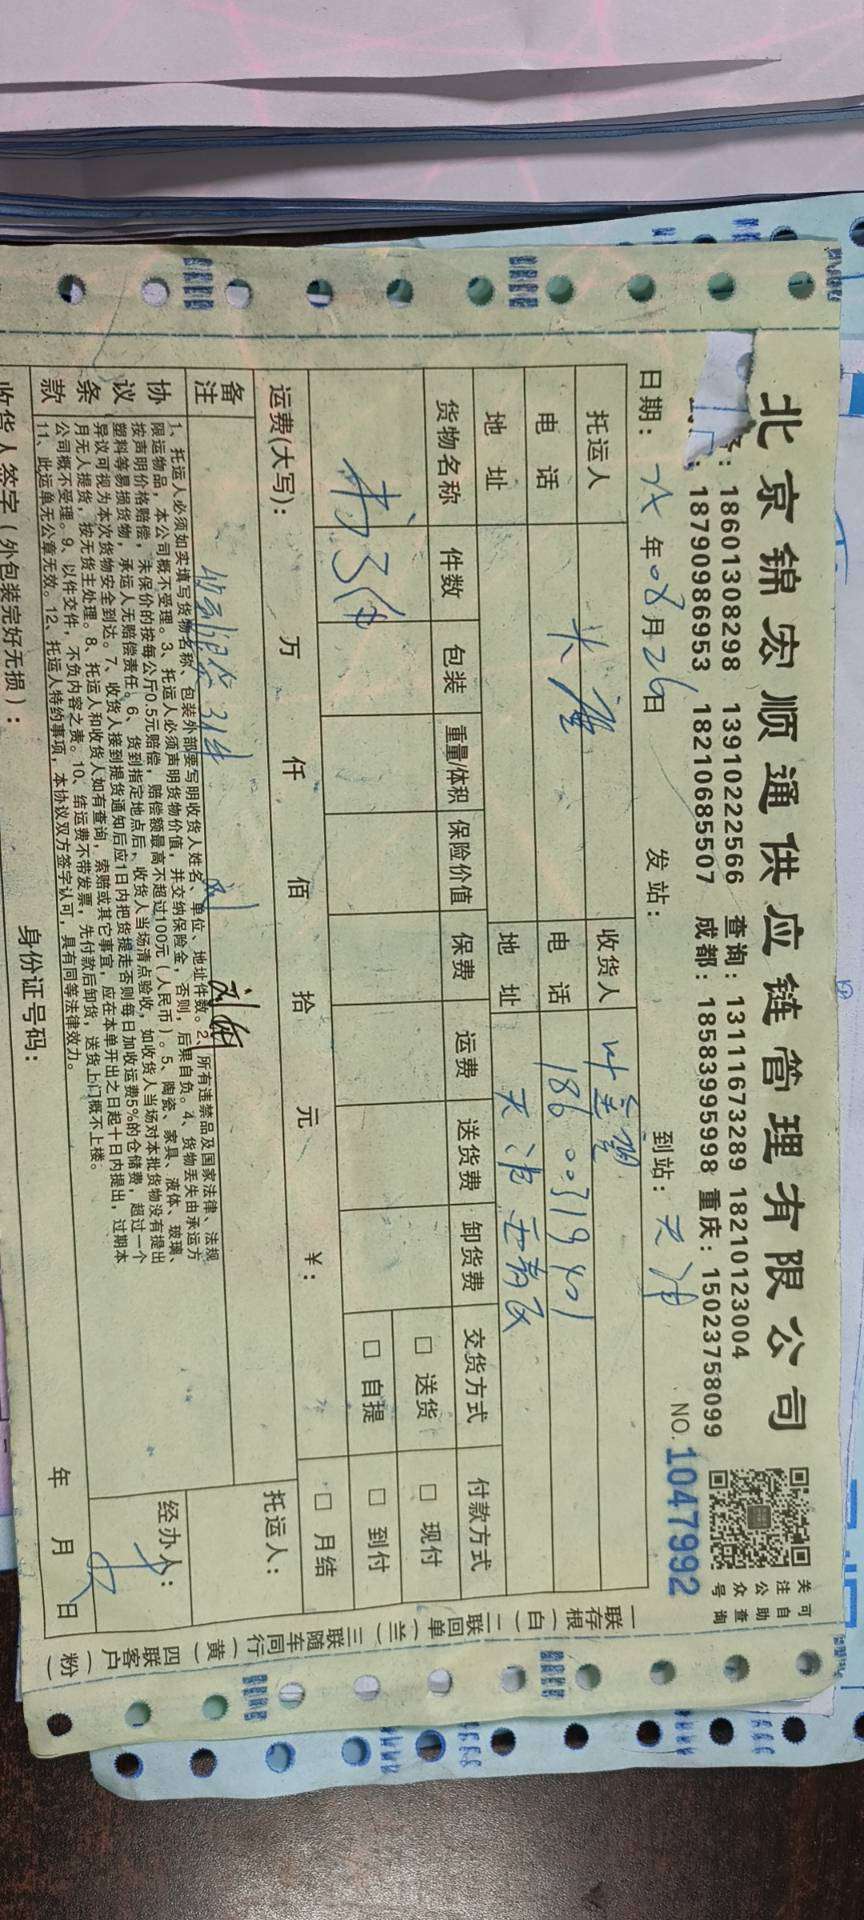 北京锦宏顺通供应链管理有限公司
可自助查询
关注公众号
18601308298 13910222566 查询：13111673289 18210123004
18790986953 18210685507 成都：18583995998 重庆：15023758099
NO. 1047992
日期： 年08月26日 发站： 到站：天津
托运人 收货人
电话 电话 186
地址 地址 天津
货物名称 件数 包装 重量/体积 保险价值 保费 运费 送货费 卸货费 交货方式 付款方式
□ 送货 □ 现付
□ 自提 □ 到付
□ 月结
运费(大写)： 万 仟 佰 拾 元 ¥：
备注
托运人：
协议条款
1、托运人必须如实填写货物名称、包装外部要写明收货人姓名、单位、地址件数。2、所有违禁品及国家法律、法规
限运物品，本公司概不受理。3、托运人必须声明货物价值，并交纳保险金，否则，后果自负。4、货物丢失由承运方
按声明价格赔偿，未保价的按每公斤0.5元赔偿，赔偿额最高不超过100元（人民币）。5、陶瓷、家具、液体、玻璃、
塑料等易损货物，承运人无赔偿责任。6、货到指定地点后，收货人当场清点验收，如收货人当场对本批货物没有提出
异议可视为本次货物安全到达。7、收货人接到提货通知后应1日内把货提走否则每日加收运费5%的仓储费，超过一个
月无人提货，按无货主处理。8、托运人和收货人如有查询，索赔或其它事宜，应在本单开出之日起十日内提出，过期本
公司概不受理。9、以件交件，不负内容之责。10、结运费不带发票，先付款后卸货，送货上门概不上楼。
11、此运单无公章无效。12、托运人特约事项，本协议双方签字认可，具有同等法律效力。
经办人：
收货人签字（外包装完好无损）： 身份证号码： 年 月 日
一联存根（白）二联回单（兰）三联随车同行（黄）四联客户（粉）